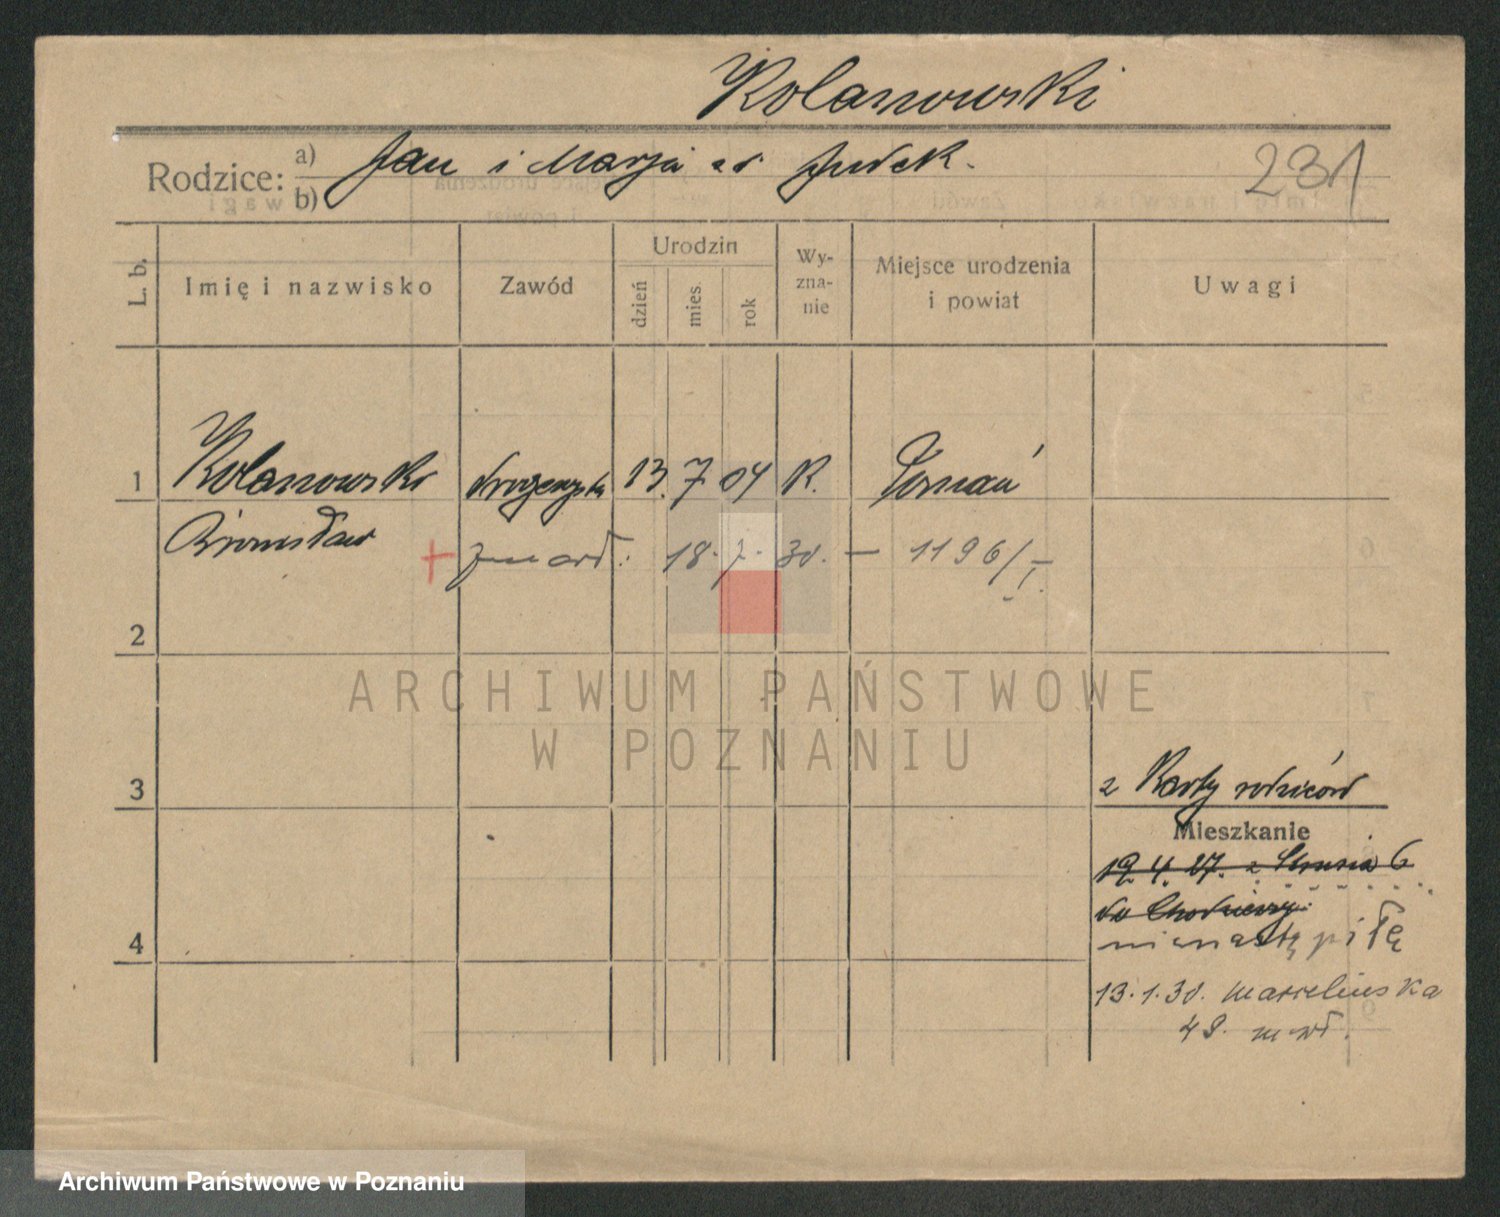 Kolanowski
Rodzice: a) b) Jan i Marja
231
L. b.
Imię i nazwisko
Zawód
Urodzin
dzień
mies.
rok
Wy-
zna-
nie
Miejsce urodzenia
i powiat
Uwagi
1 Kolanowski drogerzysta 13. 7 04 K. Poznań
Bronisław
+ zmarł. 18. 7. 30. — 1196/I.
2
ARCHIWUM PAŃSTWOWE
W POZNANIU
z Karty rodziców
3
Mieszkanie
19. 4. 27. z Strusia 6
do Chodzieży.
nie nastąpiło
4
13. 1. 30. Marcelińska
Archiwum Państwowe w Poznaniu